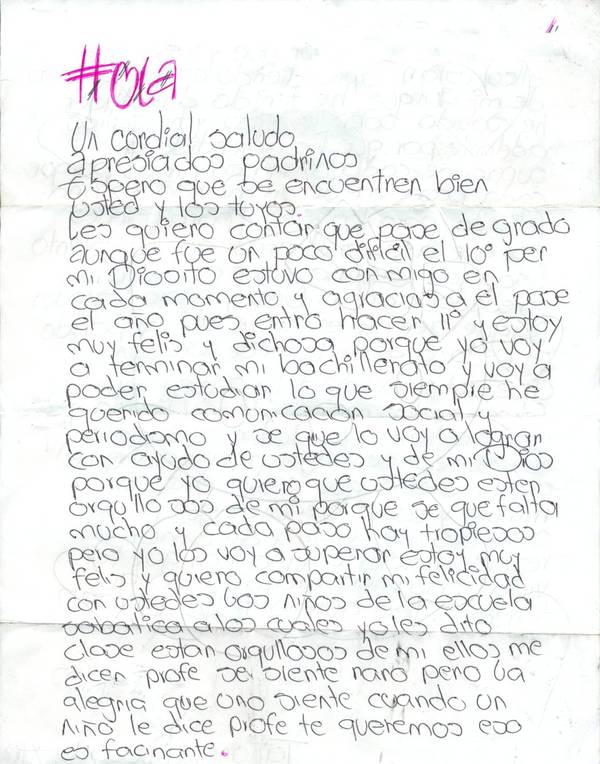 Hola
Un cordial saludo
apresiados padrinos
Espero que se encuentren bien
usted y los tuyos.
Les quiero contar que pase de grado
aunque fue un poco dificil el 10° per
mi Diosito estuvo conmigo en
cada momento y agracias a el pase
el año pues entro hacer 11° y estoy
muy felis y dichosa porque ya voy
a terminar mi bachillerato y voy a
poder estudiar lo que siempre he
querido comunicación social y
periodismo y se que lo voy a lograr
con ayuda de ustedes y de mi Dios
porque yo quiero que ustedes esten
orgullosos de mi porque se que falta
mucho y cada paso hay tropiesos
pero yo los voy a superar estoy muy
felis y quiero compartir mi felicidad
con ustedes Los niños de la escuela
sabatica a los cuales yo les dito
clase estan orgullosos de mi ellos me
dicen profe se siente raro pero La
alegria que uno siente cuando un
niño le dice profe te queremos eso
es facinante.